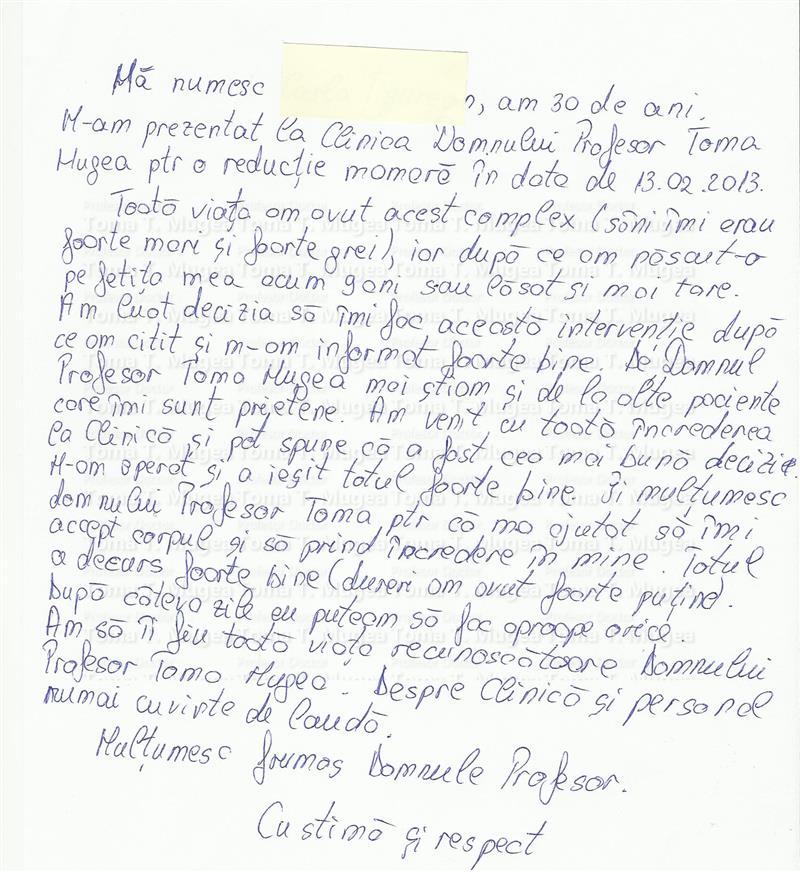 Mă numesc n, am 30 de ani.
M-am prezentat la Clinica Domnului Profesor Toma
Mugea ptr o reducție mamară în data de 13.02.2013.
Toată viața am avut acest complex (sânii îmi erau
foarte mari și foarte grei), iar după ce am născut-o
pe fetița mea acum 9 ani sau lăsat și mai tare.
Am luat decizia să îmi fac această intervenție după
ce am citit și m-am informat foarte bine. De Domnul
Profesor Toma Mugea mai știam și de la alte paciente
care îmi sunt prietene. Am venit cu toată încrederea
la Clinică și pot spune că a fost cea mai bună decizie.
M-am operat și a ieșit totul foarte bine și mulțumesc
domnului Profesor Toma, ptr că ma ajutat să îmi
accept corpul și să prind încredere în mine. Totul
a decurs foarte bine (dureri am avut foarte puține).
După câteva zile eu puteam să fac aproape orice.
Am să îi fiu toată viața recunoscătoare Domnului
Profesor Toma Mugea. Despre Clinică și personal
numai cuvinte de laudă.
Mulțumesc frumos Domnule Profesor.
Cu stimă și respect